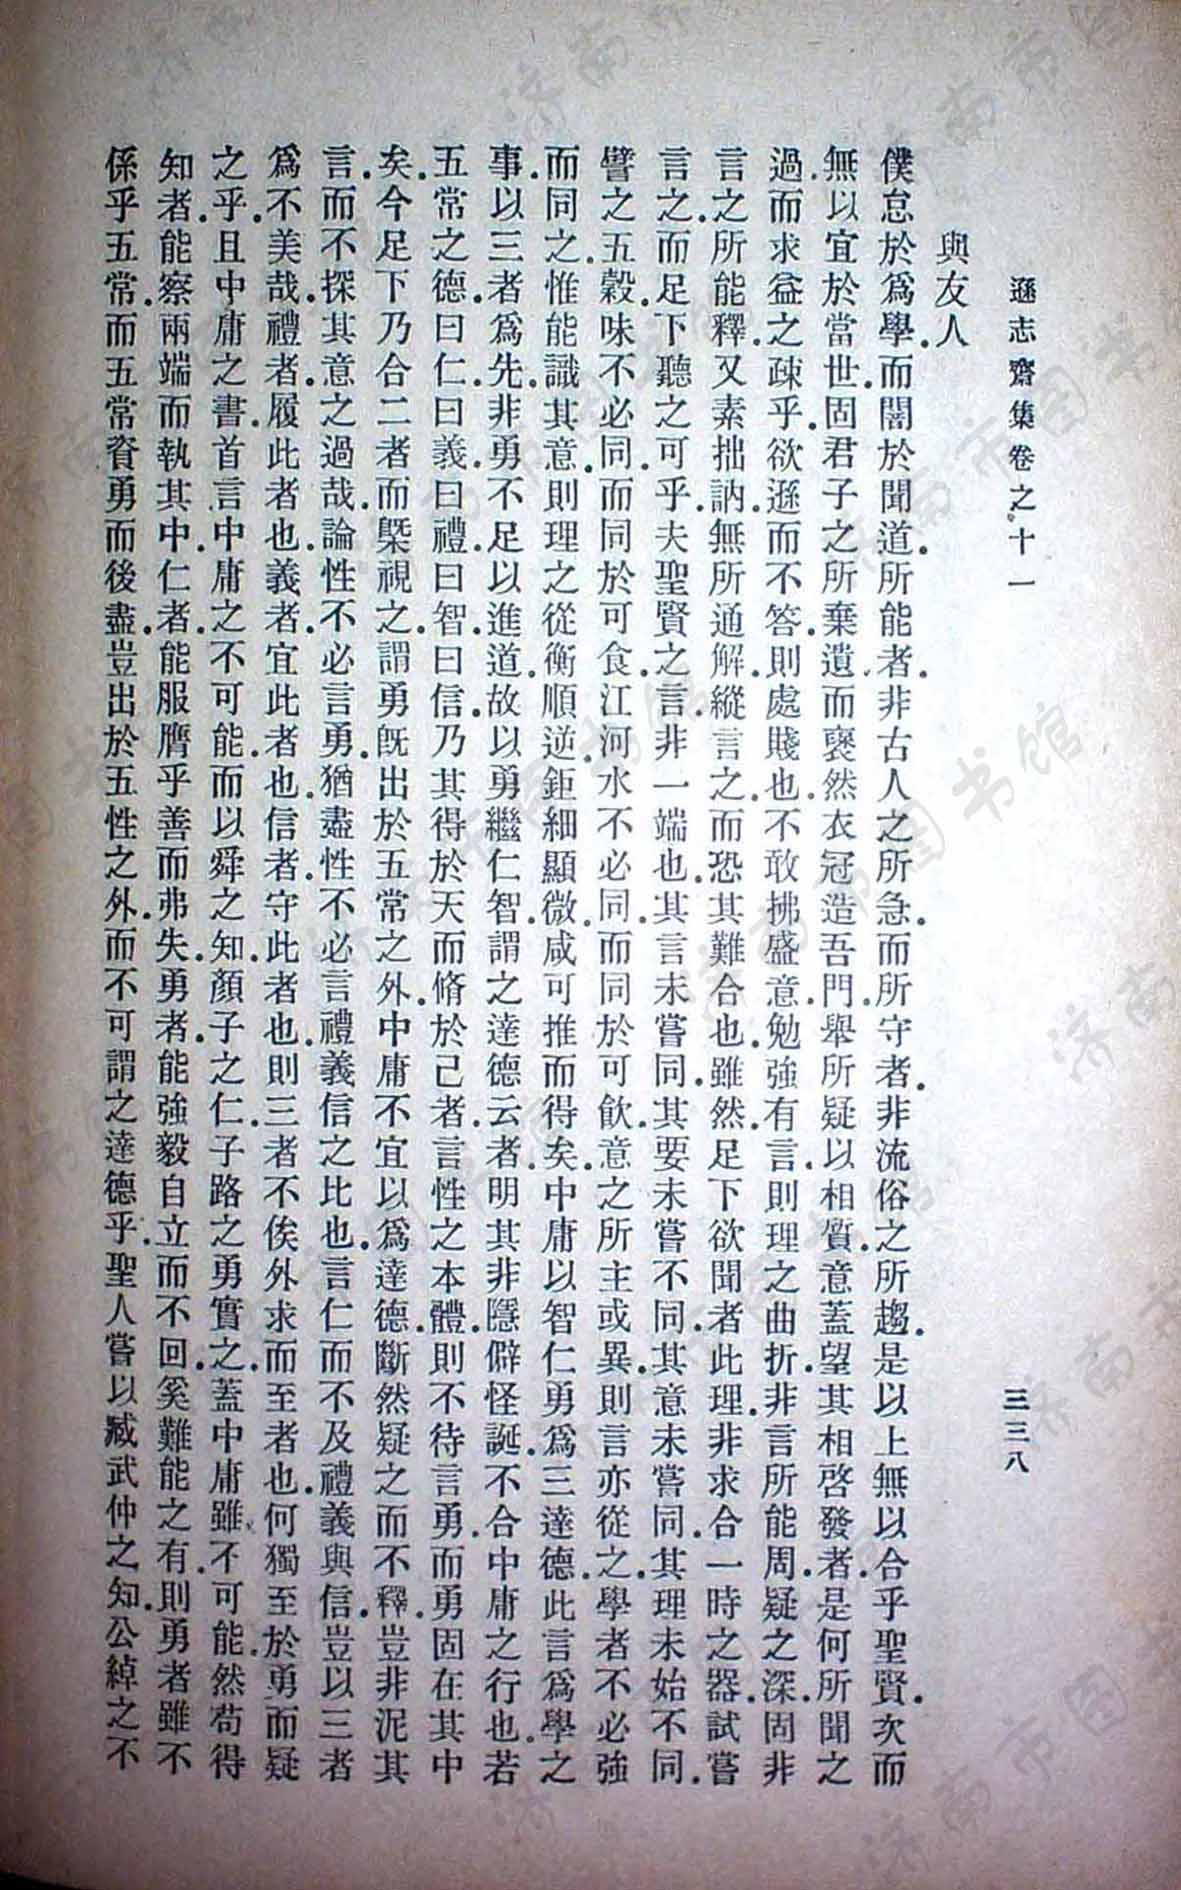 遜志齋集卷之十一
三三八
與友人
僕怠於爲學．而闇於聞道．所能者．非古人之所急．而所守者．非流俗之所趨．是以上無以合乎聖賢．次而
無以宜於當世．固君子之所棄遺．而褎然衣冠造吾門．舉所疑以相質．意蓋望其相啓發者．是何所聞之
過．而求益之疎乎．欲遜而不答．則處賤也．不敢拂盛意．勉強有言．則理之曲折．非言所能周．疑之深．固非
言之所能釋．又素拙訥．無所通解．縱言之．而恐其難合也．雖然．足下欲聞者此理．非求合一時之器．試嘗
言之．而足下聽之可乎．夫聖賢之言．非一端也．其言未嘗同．其要未嘗不同．其意未嘗同．其理未始不同．
譬之五穀．味不必同．而同於可食．江河水不必同．而同於可飲．意之所主或異．則言亦從之．學者不必強
而同之．惟能識其意．則理之從衡順逆．鉅細顯微．咸可推而得矣．中庸以智仁勇爲三達德．此言爲學之
事．以三者爲先．非勇不足以進道．故以勇繼仁智．謂之達德云者．明其非隱僻怪誕．不合中庸之行也．若
五常之德．曰仁．曰義．曰禮．曰智．曰信．乃其得於天而脩於己者．言性之本體．則不待言勇．而勇固在其中
矣．今足下乃合二者而槩視之．謂勇旣出於五常之外．中庸不宜以爲達德．斷然疑之而不釋．豈非泥其
言．而不探其意之過哉．論性不必言勇．猶盡性不必言禮義信之比也．言仁而不及禮義與信．豈以三者
爲不美哉．禮者．履此者也．義者．宜此者也．信者．守此者也．則三者不俟外求而至者也．何獨至於勇而疑
之乎．且中庸之書．首言中庸之不可能．而以舜之知．顏子之仁．子路之勇實之．蓋中庸雖不可能．然苟得
知者．能察兩端而執其中．仁者．能服膺乎善而弗失．勇者．能強毅自立而不回．奚難能之有．則勇者雖不
係乎五常．而五常資勇而後盡．豈出於五性之外．而不可謂之達德乎．聖人嘗以臧武仲之知．公綽之不